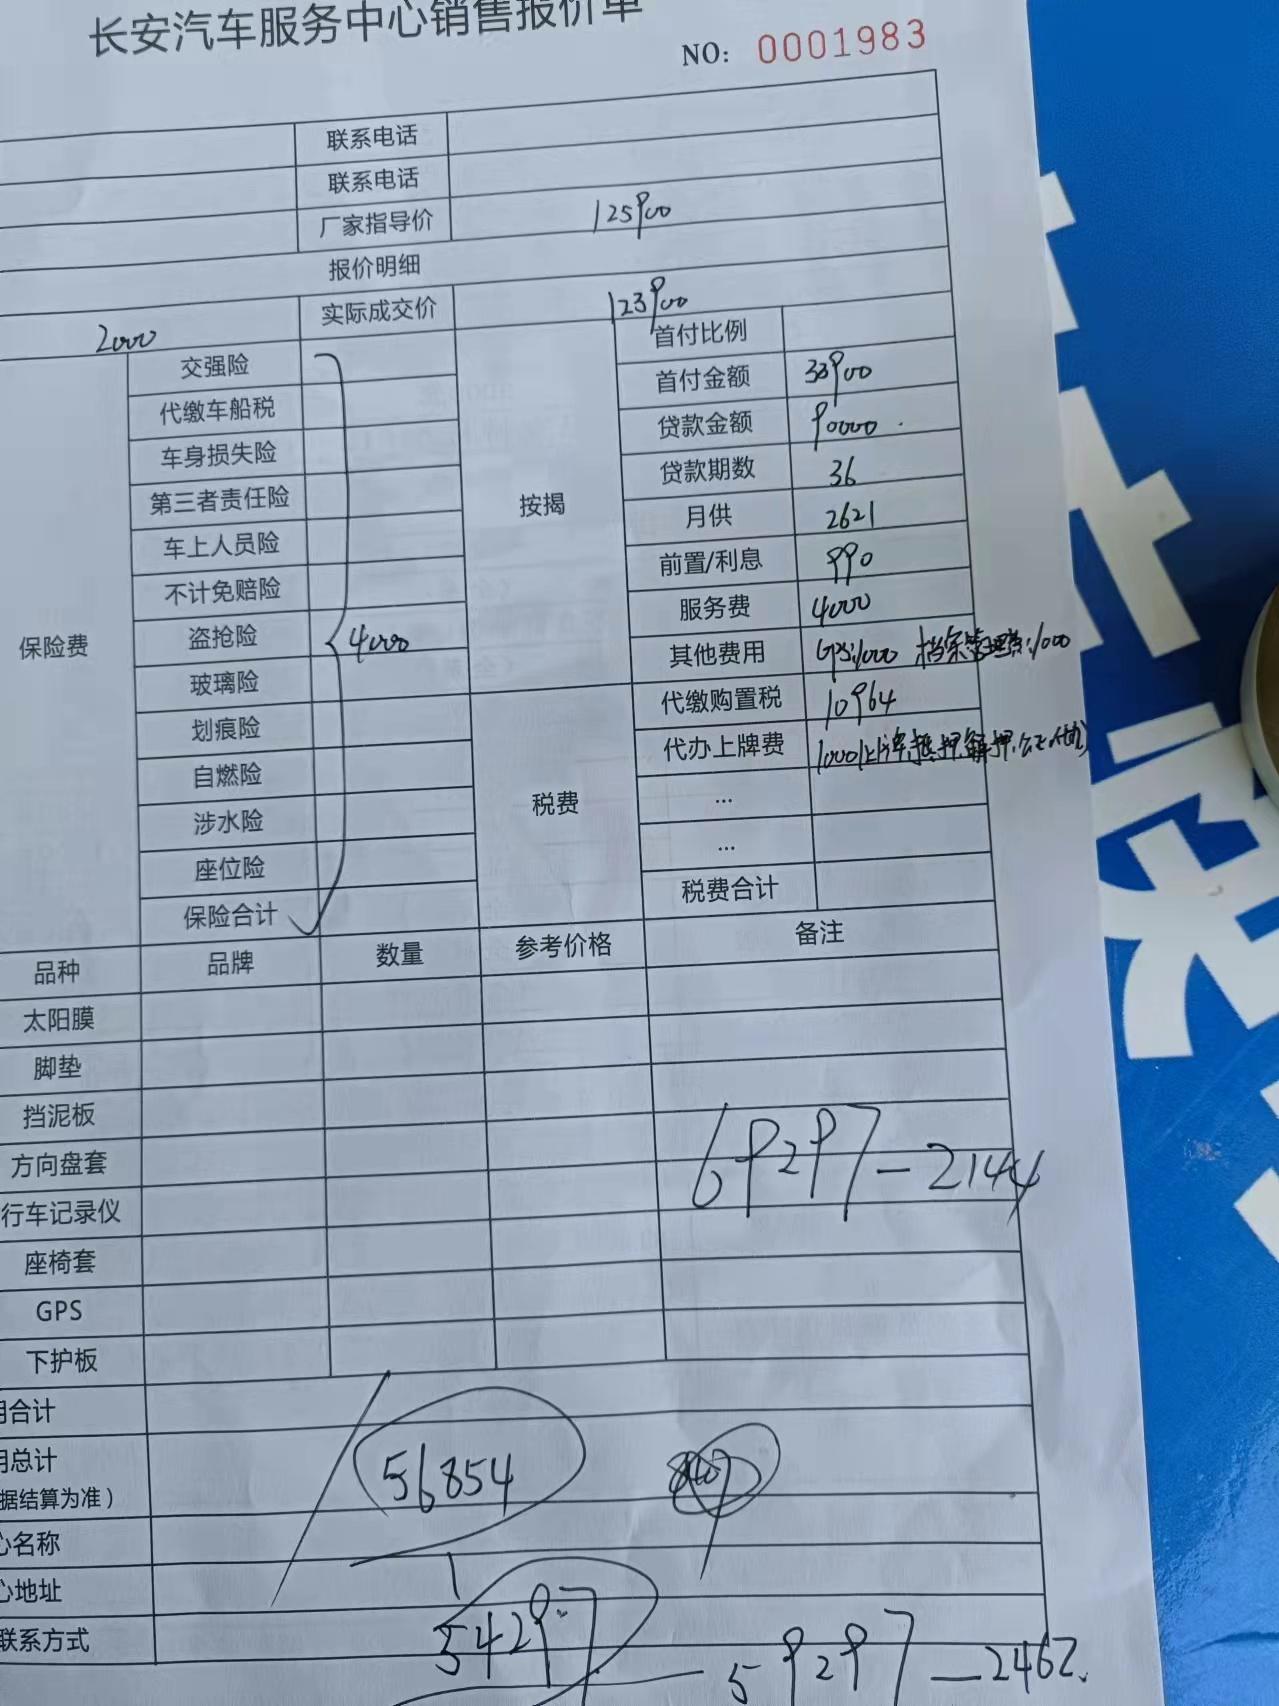 长安汽车服务中心销售报价单
NO: 0001983
联系电话
联系电话
厂家指导价 125900
报价明细
2000 实际成交价 123900
保险费
交强险
代缴车船税
车身损失险
第三者责任险
车上人员险
不计免赔险
盗抢险 4000
玻璃险
划痕险
自燃险
涉水险
座位险
保险合计
按揭
首付比例
首付金额 33900
贷款金额 90000
贷款期数 36
月供 2621
前置/利息 990
服务费 4000
其他费用 GPS:1000 档案管理费:1000
税费
代缴购置税 10964
代办上牌费 1000(上牌.抵押.解押.
...
...
税费合计
品种 品牌 数量 参考价格 备注
太阳膜
脚垫
挡泥板
方向盘套 69297-2144
行车记录仪
座椅套
GPS
下护板
合计
总计 56854
据结算为准)
名称
地址
联系方式 54297 — 59297 — 2462